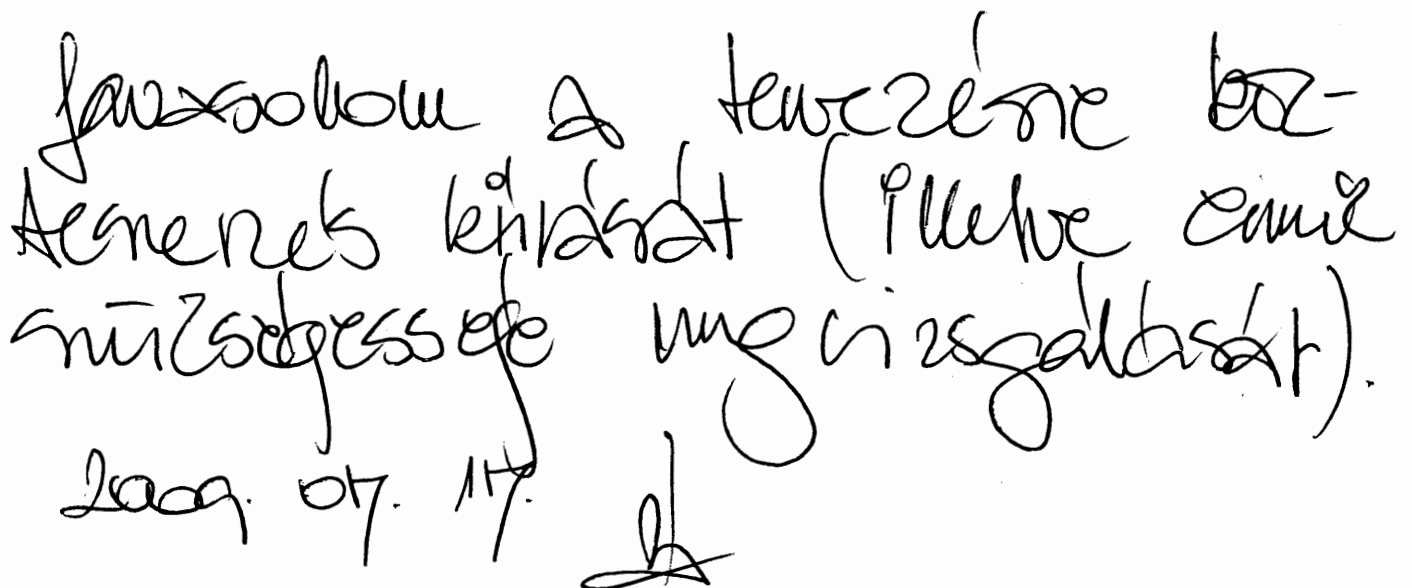 Javasolom a tervezésre köz-
beszerzés kiírását (illetve ennek
szükségessége megvizsgálását).
2009. 07. 17.